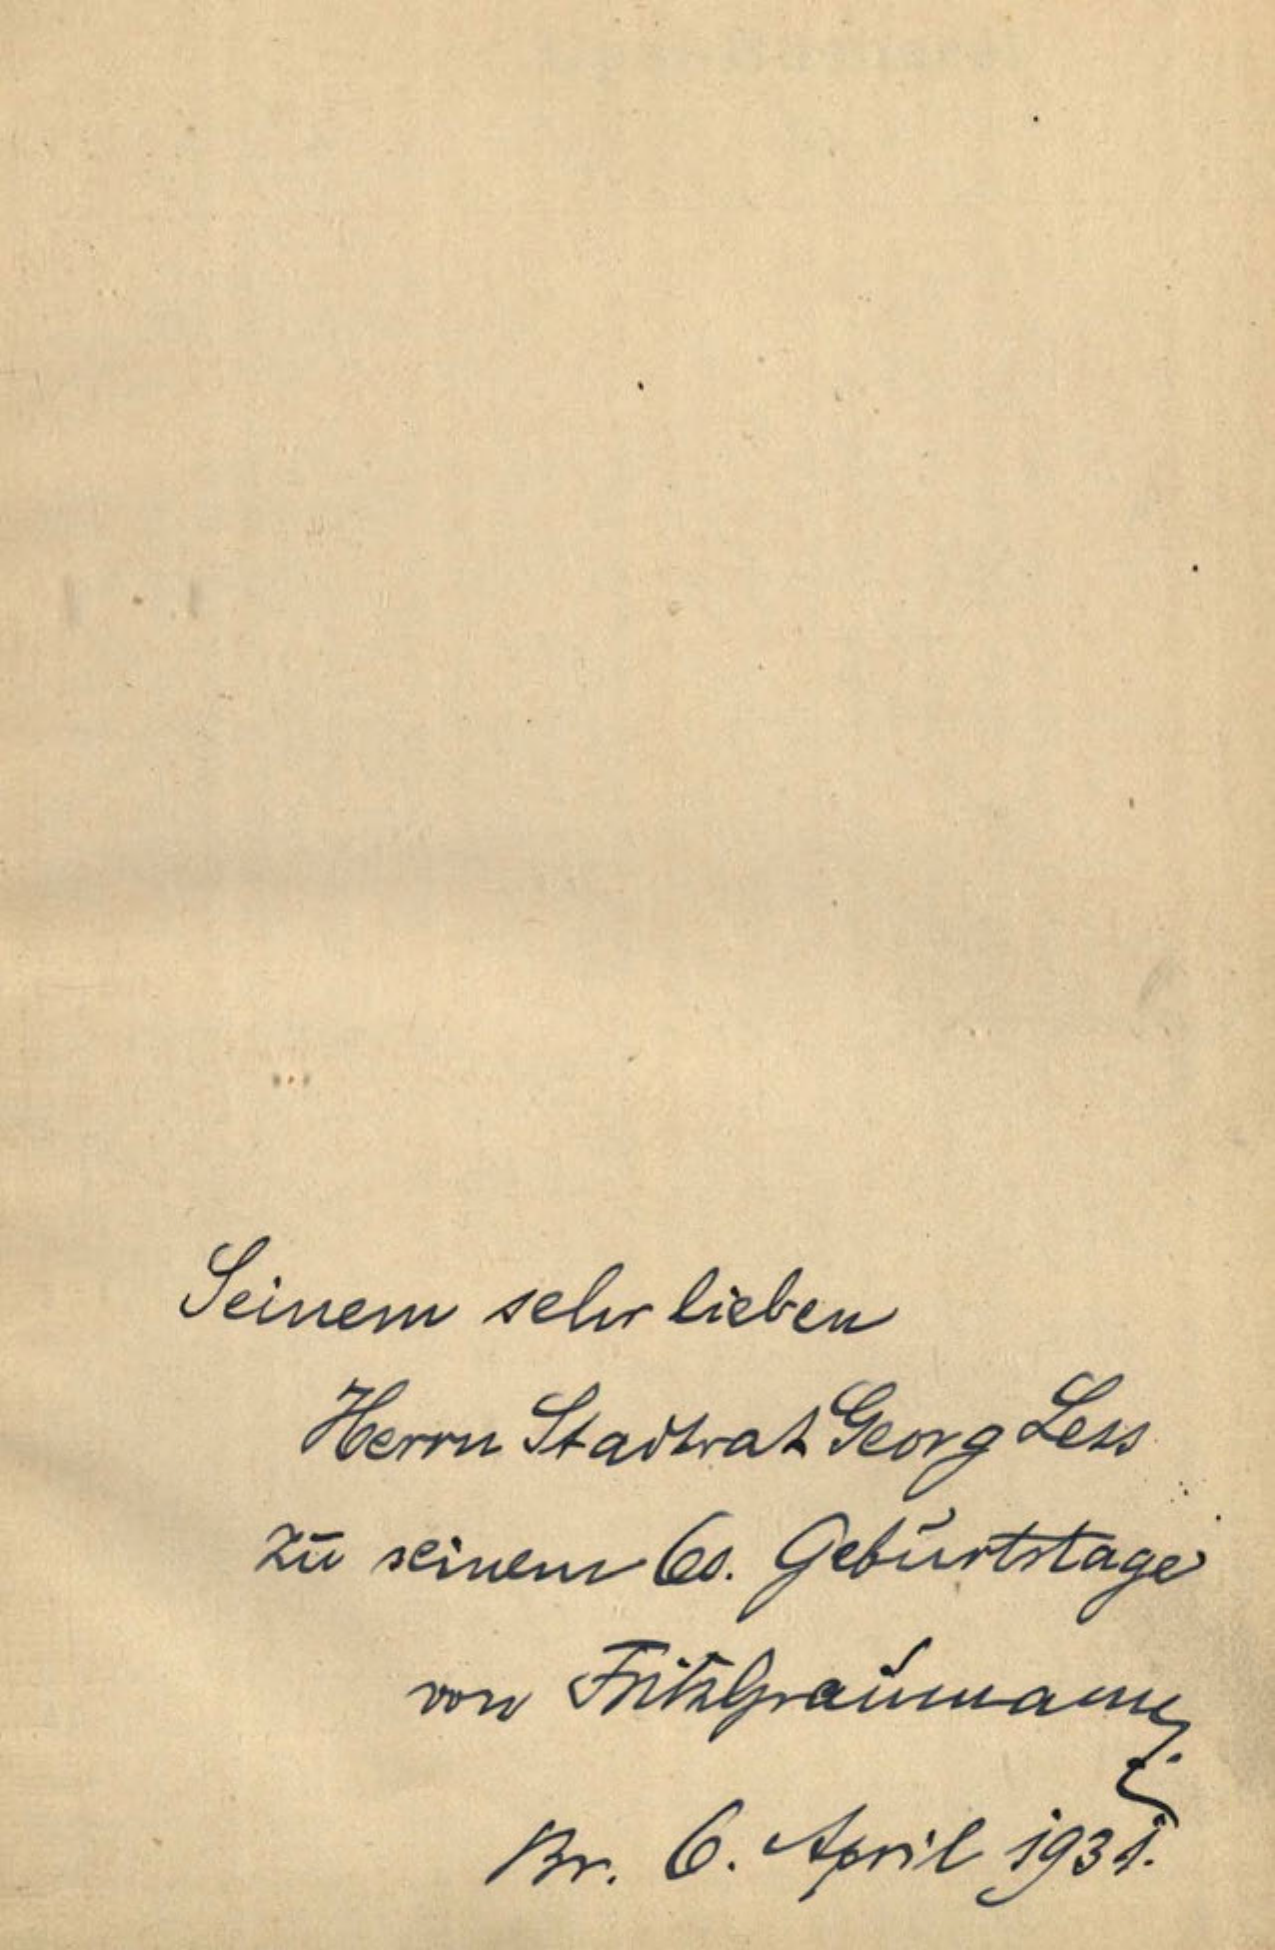 Seinem sehr lieben
Herrn Stadtrat Georg Less
zu seinem 60. Geburtstage
von Fritz Graumann
Br. 6. April 1931.